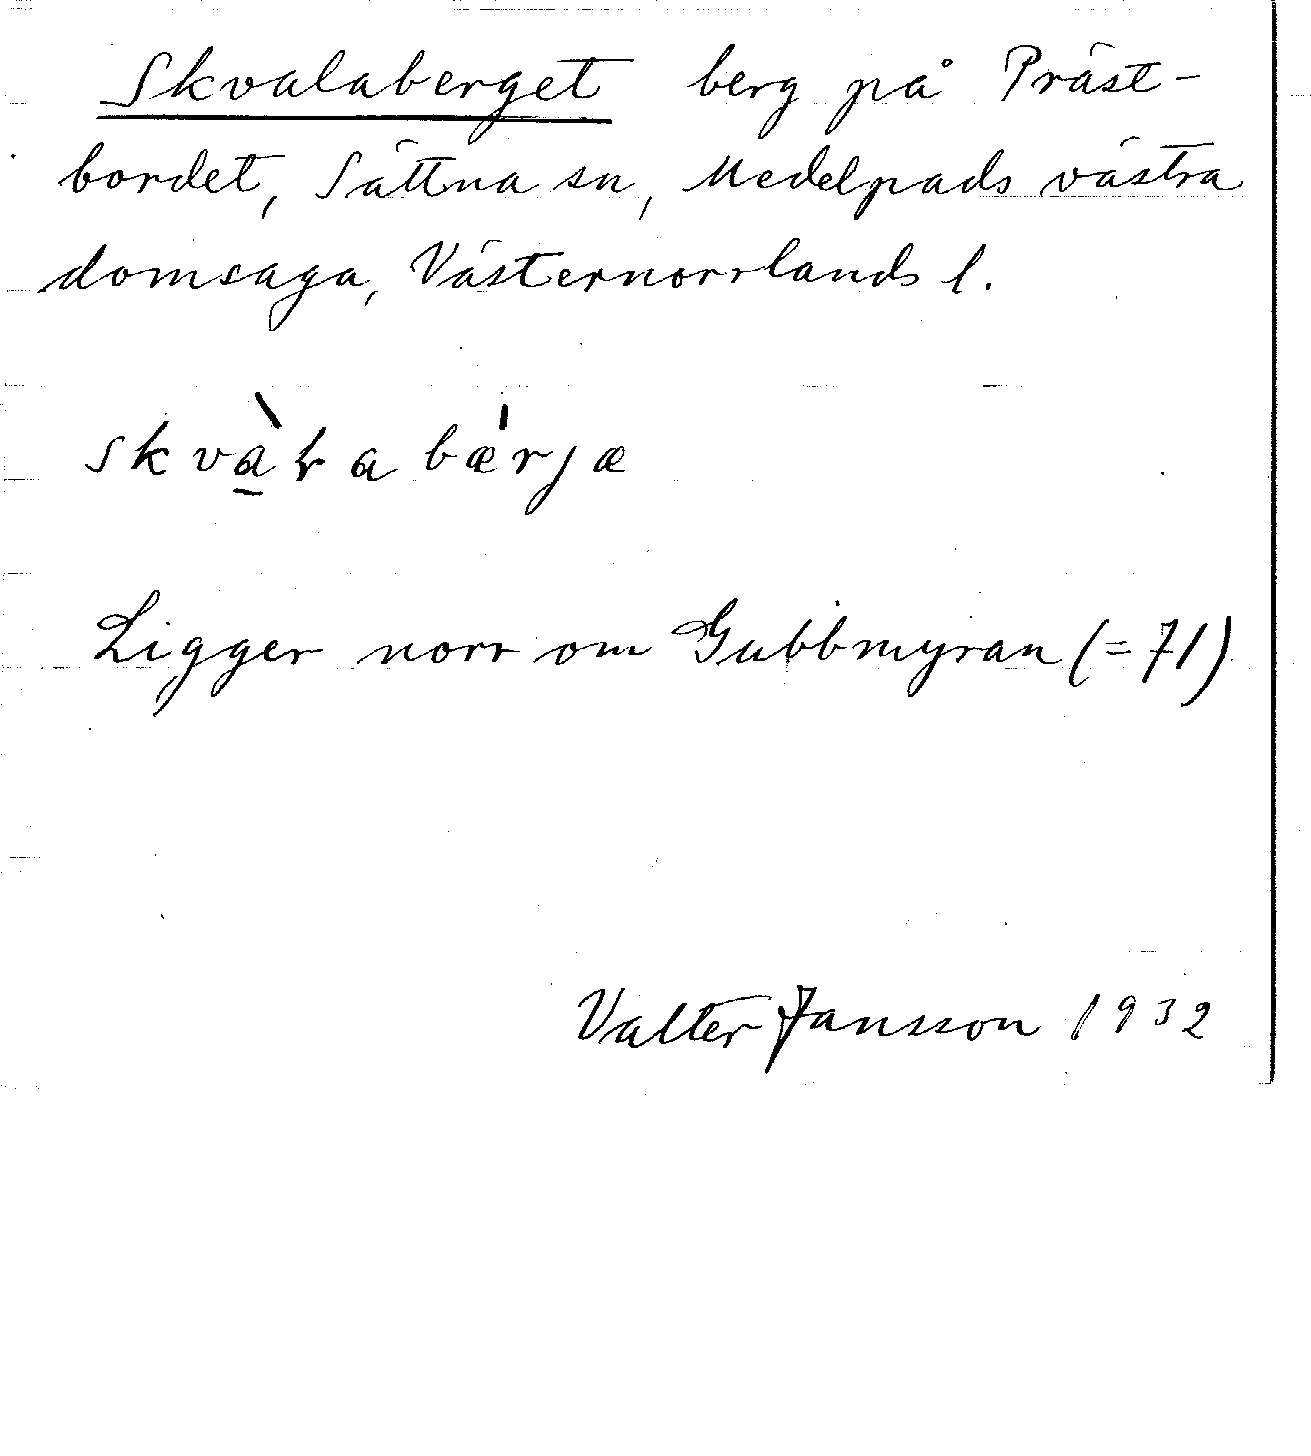 Skvalaberget berg på Präst-
bordet, Sättna sn, Medelpads västra
domsaga, Västernorrlands l.
skvàɽabǽrjæ
Ligger norr om Gubbmyran (=71)
Valter Jansson 1932